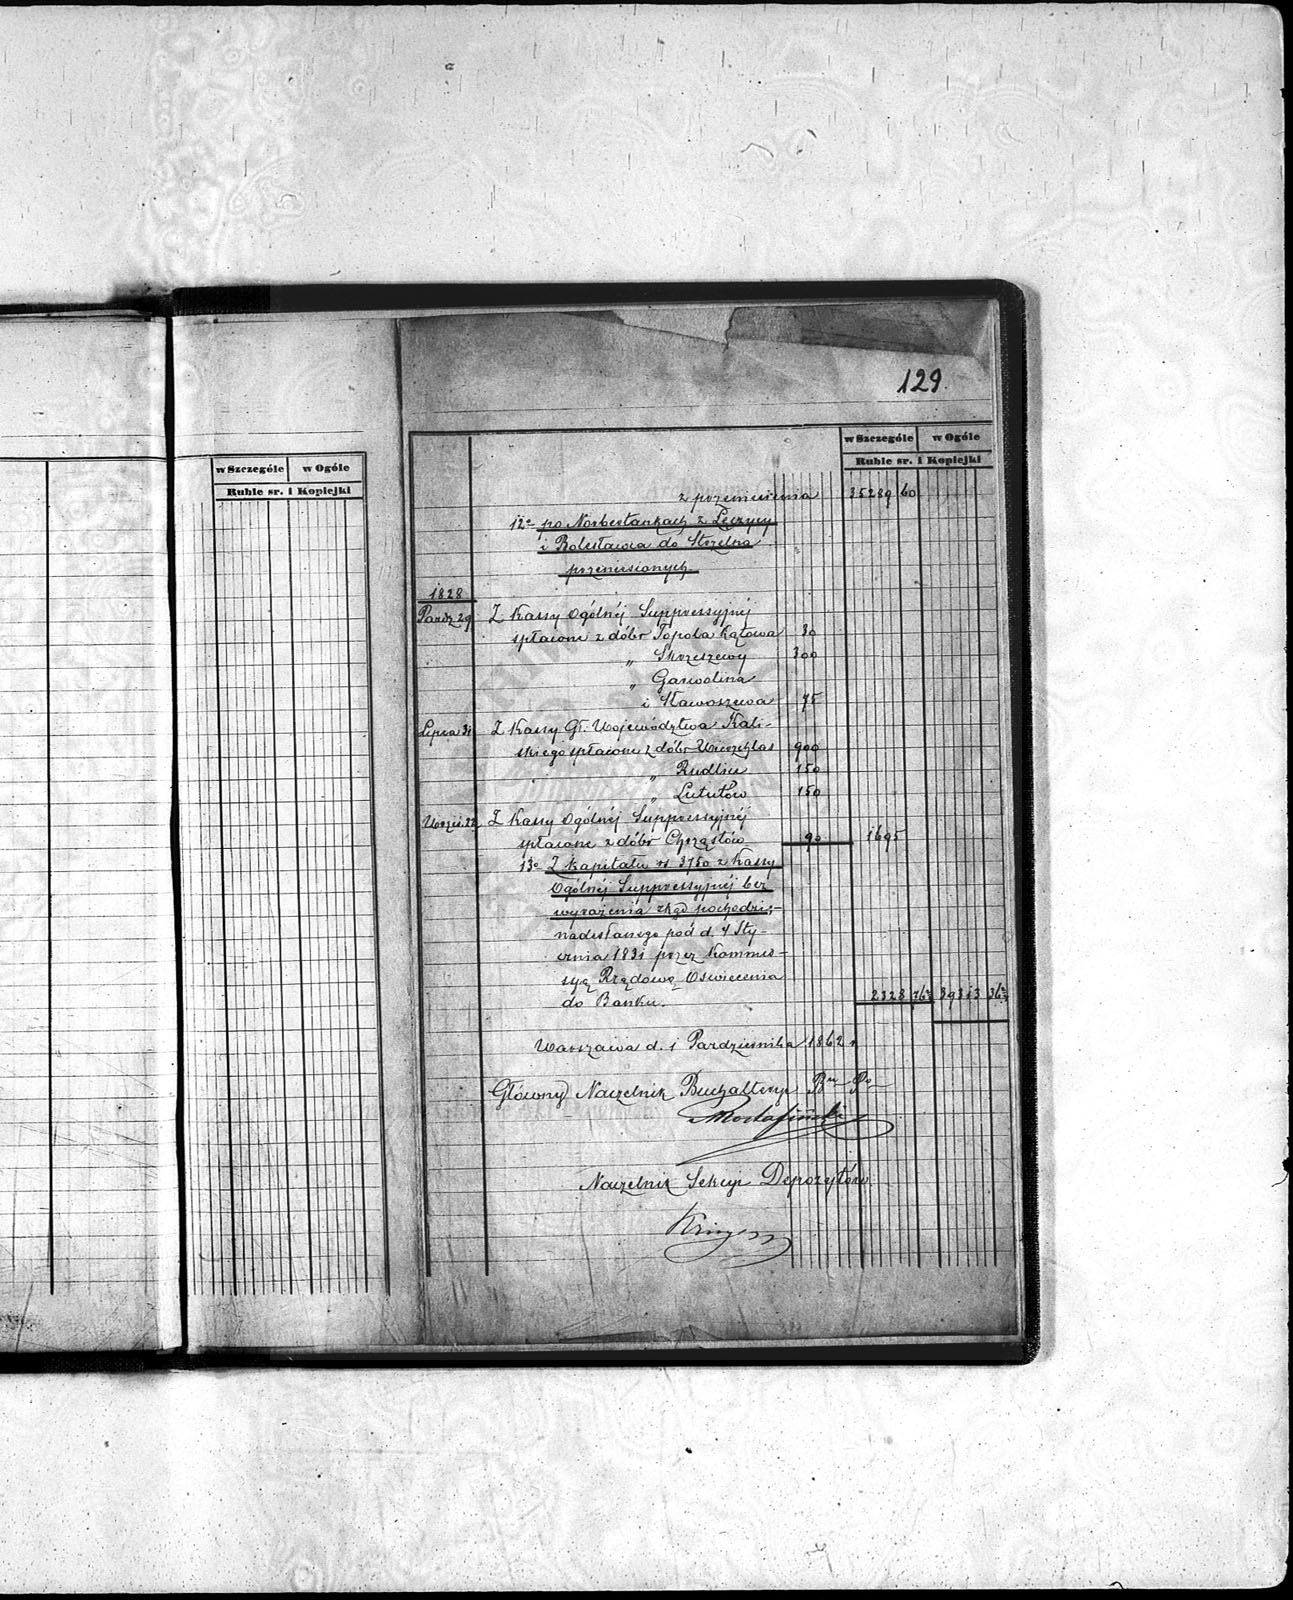 129.
w Szczególe w Ogóle
Ruble sr. i Kopiejki
w Szczególe w Ogóle
Ruble sr. i Kopiejki
z przeniesienia 35289 60
12e po Norbertankach z Łęczycy
i Bolesławca do Strzelna
przeniesionych.
1828
Pazdz 29 Z Kassy Ogólnéj Suppressyjnéj
spłacone z dóbr Topola Kątowa 30
" Skrzeszewy 300
" Gawolina
i Sławoszewa 75
Lipca 31 Z Kassy Gł. Województwa Kali-
skiego spłacone z dóbr Wierzchlas 900
" Rudlice 150
" Lututów 150
Wrześ. 22 Z Kassy Ogólnéj Suppressyjnéj
spłacone z dóbr Chrząstów 90 1695
13e Z kapitału rs 3750 z Kassy
Ogólnéj Suppressyjnéj bez
wyrażenia zkąd pochodzi,
nadesłanego pod d. 4 Sty-
cznia 1831 przez Kommis-
syą Rządową Oświecenia
do Banku. 2328 76½ 39313 36½
Warszawa d. 1 Pazdziernika 1862 r
Główny Naczelnik Buchalteryi
Naczelnik Sekcyi Depozytów